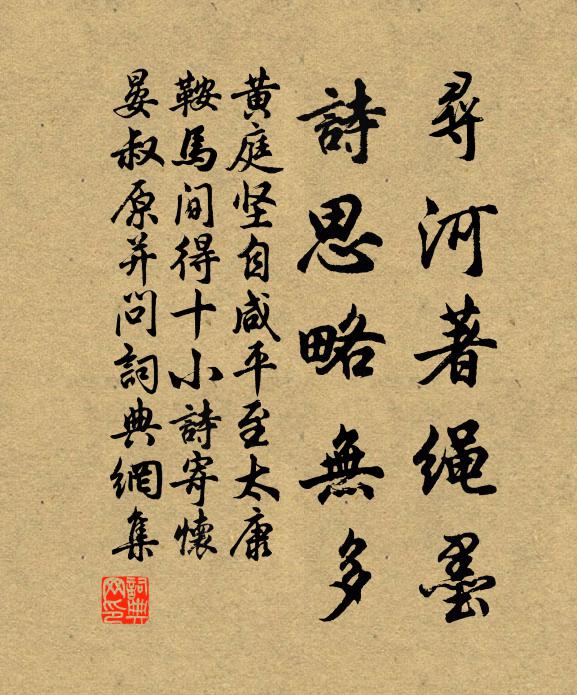 尋河著绳墨
詩思略無多
黄庭坚自咸平至太康
鞍馬间得十小詩寄懷
晏叔原并问詞典網集
詞典网印